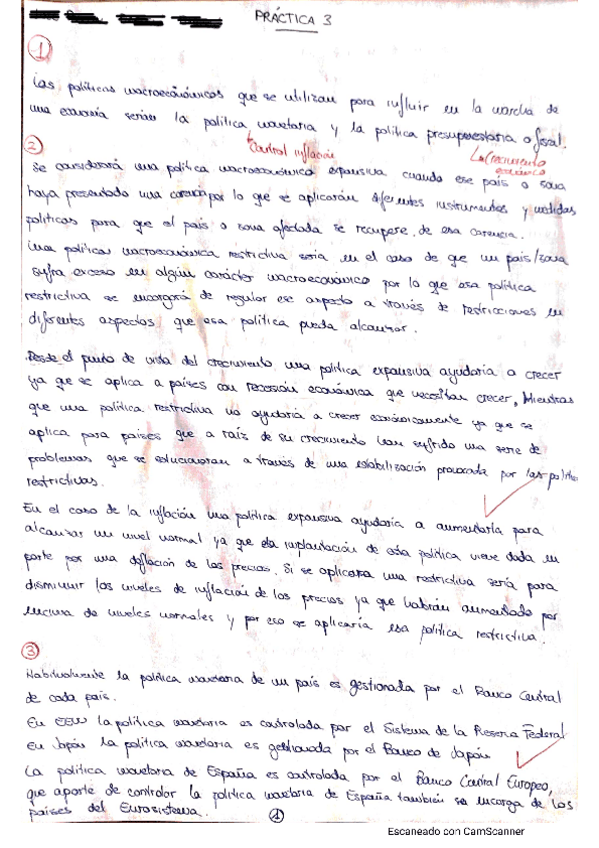 PRÁCTICA 3
1
Las políticas macroeconómicas que se utilizan para influir en la marcha de
una economía serían la política monetaria y la política presupuestaria o fiscal.
Control inflación
Crecimiento económico
2
Se considerará una política macroeconómica expansiva cuando ese país o zona
haya presentado una carencia por lo que se aplicarán diferentes instrumentos y medidas
políticas para que el país o zona afectada se recupere de esa carencia.
Una política macroeconómica restrictiva sería en el caso de que un país/zona
sufra exceso en algún carácter macroeconómico por lo que esa política
restrictiva se encargará de regular ese aspecto a través de restricciones en
diferentes aspectos, que esa política pueda alcanzar.
Desde el punto de vista del crecimiento una política expansiva ayudaría a crecer
ya que se aplica a países con recesión económica que necesitan crecer, Mientras
que una política restrictiva no ayudaría a crecer económicamente ya que se
aplica para países que a raíz de su crecimiento han sufrido una serie de
problemas que se solucionaran a través de una estabilización provocada por las
restrictivas.
En el caso de la inflación una política expansiva ayudaría a aumentarla para
alcanzar un nivel normal ya que la implantación de esta política viene dada en
parte por una deflación de los precios. Si se aplicara una restrictiva sería para
disminuir los niveles de inflación de los precios ya que habrán aumentado por
encima de niveles normales y por eso se aplicaría esa política restrictiva.
3
Habitualmente la política monetaria de un país es gestionada por el Banco Central
de cada país.
En EEUU la política monetaria es controlada por el Sistema de la Reserva Federal
En Japón la política monetaria es gestionada por el Banco de Japón
La política monetaria de España es controlada por el Banco Central Europeo,
que aparte de controlar la política monetaria de España también se encarga de los
países del Eurosistema.
1
Escaneado con CamScanner